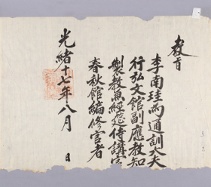 教旨
李南珪爲通訓大夫
行弘文館副應敎知
製敎兼經筵侍講官
春秋館編修官者
光緖十七年八月　日